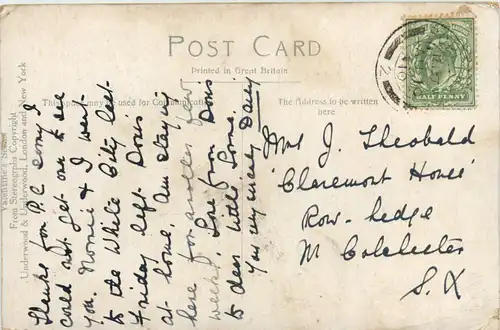 POST CARD
Printed in Great Britain
This space may be used for Communication
The Address to be written
here
From Stereographs Copyright
Underwood & Underwood, London and New York
HALF PENNY
Thanks for P.C. sorry I
could not get over to see
you. Nonnie & I went
to the White City last
Friday left Doris
at home. Am staying
here for another few
weeks. Love from Doris
to dear little Lorna.
Daisy
Mrs J. Theobald
"Claremont House"
Row-hedge
Nr Colchester
S.X